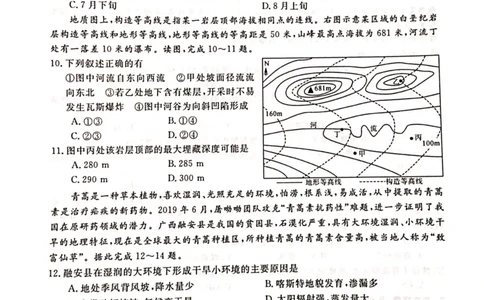 C. 7月下旬 D. 8月上旬
地质图上,构造等高线是指某一岩层顶部海拔相同点的连线。右图示意某区域的白垩纪岩
层构造等高线和地形等高线,地形等高线的等高距是50米,山峰最高点海拔为681米,河流丁
处有一落差10米的瀑布。读图,完成10~11题。
10. 下列叙述正确的有
①图中河流自东向西流 ②甲处坡面径流流
向东北 ③若乙处地下含有煤层,开采时不易
发生瓦斯爆炸 ④图中河谷为向斜凹陷形成
A. ①③ B. ①④
C. ②③ D. ②④
11. 图中丙处该岩层顶部的最大埋藏深度可能是
A. 280 m B. 285 m
C. 290 m D. 300 m
N
681m
160m
河
流
丁
丙
甲
100m
地形等高线 构造等高线
青蒿是一种草本植物,喜欢湿润、光照充足的环境,怕涝,根系浅,易成活,从中提取的青蒿
素是治疗疟疾的新药物。2019年6月,屠呦呦团队攻克“青蒿素抗药性”难题,进一步证明了我
国在原研药领域的潜力。广西融安县是我国的贫困县,石漠化严重,具有大环境湿润、小环境干
旱的地理特征,现在是全球最大的青蒿种植区,所种植青蒿的青蒿素含量高,被当地人称为“致
富仙草”。据此完成12~14题。
12. 融安县在湿润的大环境下形成干旱小环境的主要原因是
A. 地处季风背风坡,降水量少 B. 喀斯特地貌发育,渗漏多